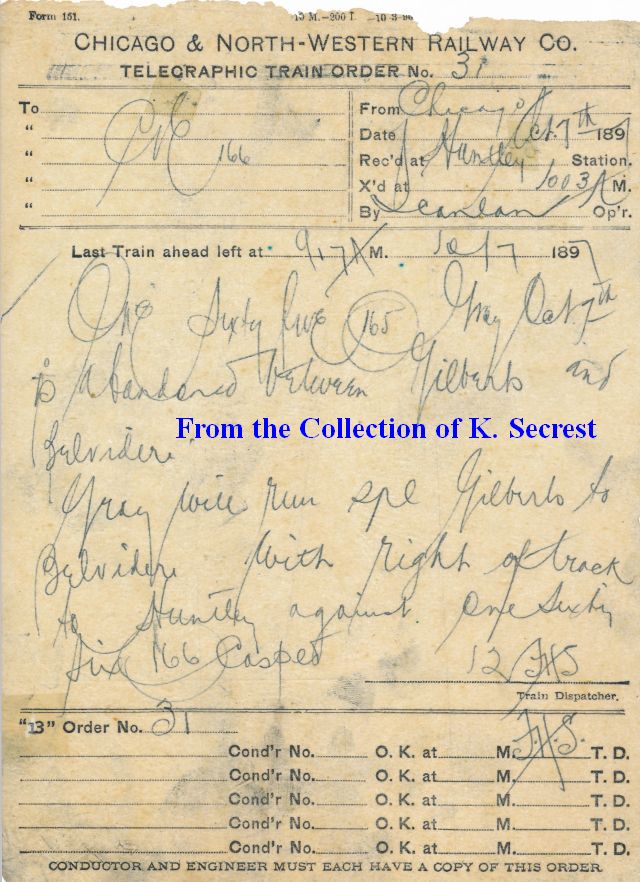 Form 151.
CHICAGO & NORTH-WESTERN RAILWAY CO.
TELEGRAPHIC TRAIN ORDER No. 31
To C&E
"
" 166
"
"
From Chicago
Date Oct. 7th 1897
Rec'd at Huntley Station.
X'd at 1003 A M.
By Scanlan Op'r.
Last Train ahead left at 9,17 A M. 10/7 1897
One Sixty five 165 Gray Oct. 7th
is abandoned between Gilberts and
Belvidere.
From the Collection of K. Secrest
Gray will run spl Gilberts to
Belvidere with right of track
to Huntley against one sixty
six 166
12 FHS
Train Dispatcher.
"13" Order No. 31 F.H.S.
Cond'r No. O. K. at M. T. D.
Cond'r No. O. K. at M. T. D.
Cond'r No. O. K. at M. T. D.
Cond'r No. O. K. at M. T. D.
Cond'r No. O. K. at M. T. D.
CONDUCTOR AND ENGINEER MUST EACH HAVE A COPY OF THIS ORDER.